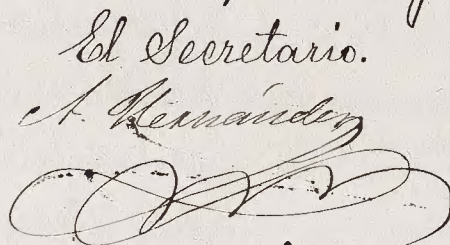 El Secretario.
A. Hernández